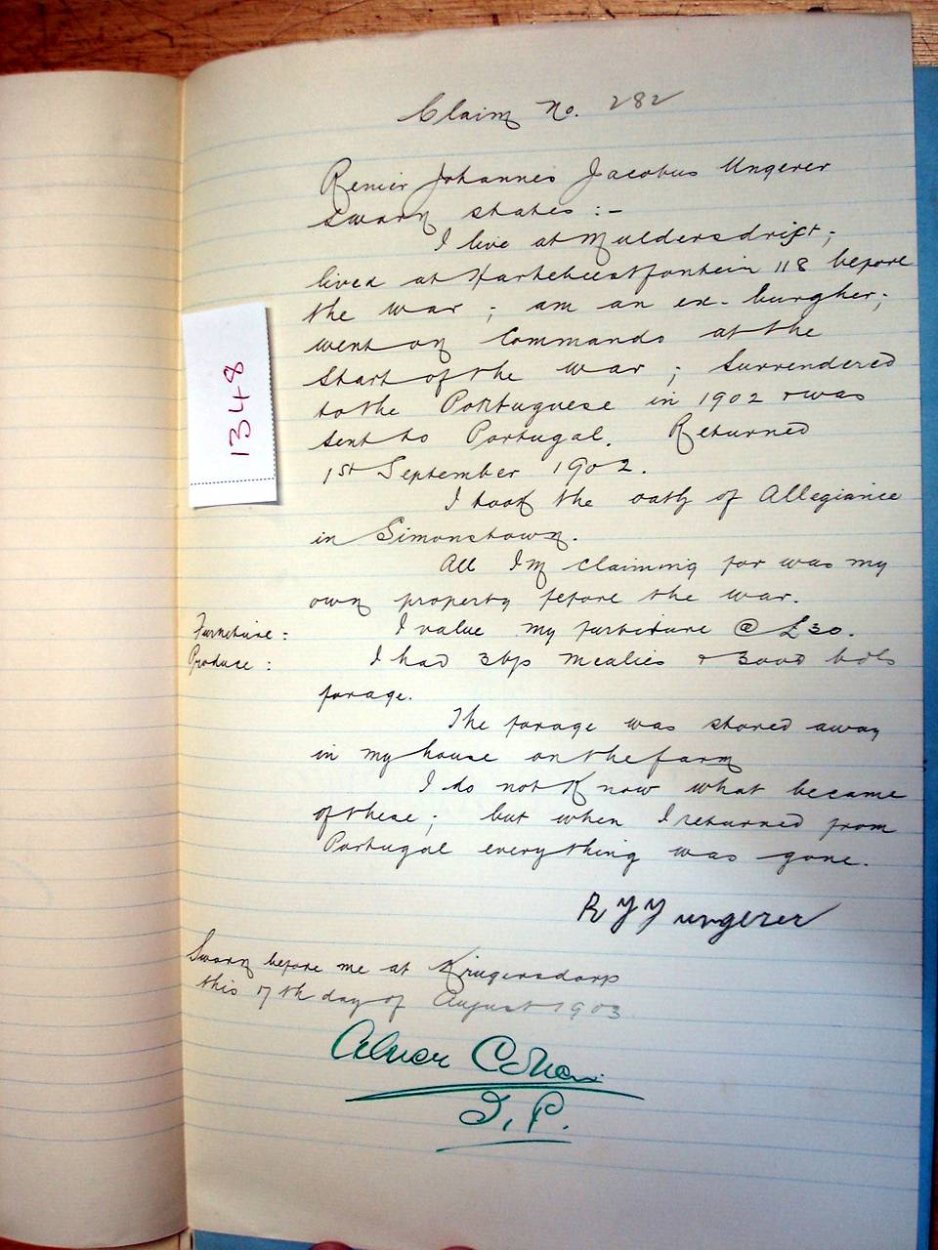 Claim No. 282
Renier Johannes Jacobus Ungerer
sworn states :-
I live at Muldersdrift ;
lived at Hartebeestfontein 118 before
the war ; am an ex-burgher ;
went on Commando at the
start of the war ; surrendered
to the Portuguese in 1902 & was
sent to Portugal. Returned
1st September 1902.
I took the oath of Allegiance
in Simonstown.
All I'm claiming for was my
own property before the war.
Furniture : I value my furniture @ £30.
Produce : I had 3 bgs mealies & 3000 bdls
forage.
The forage was stored away
in my house on the farm
I do not know what became
of these ; but when I returned from
Portugal everything was gone.
R J J ungerer
Sworn before me at Krugersdorp
this 17th day of August 1903
Abner Cohen
J. P.
1348